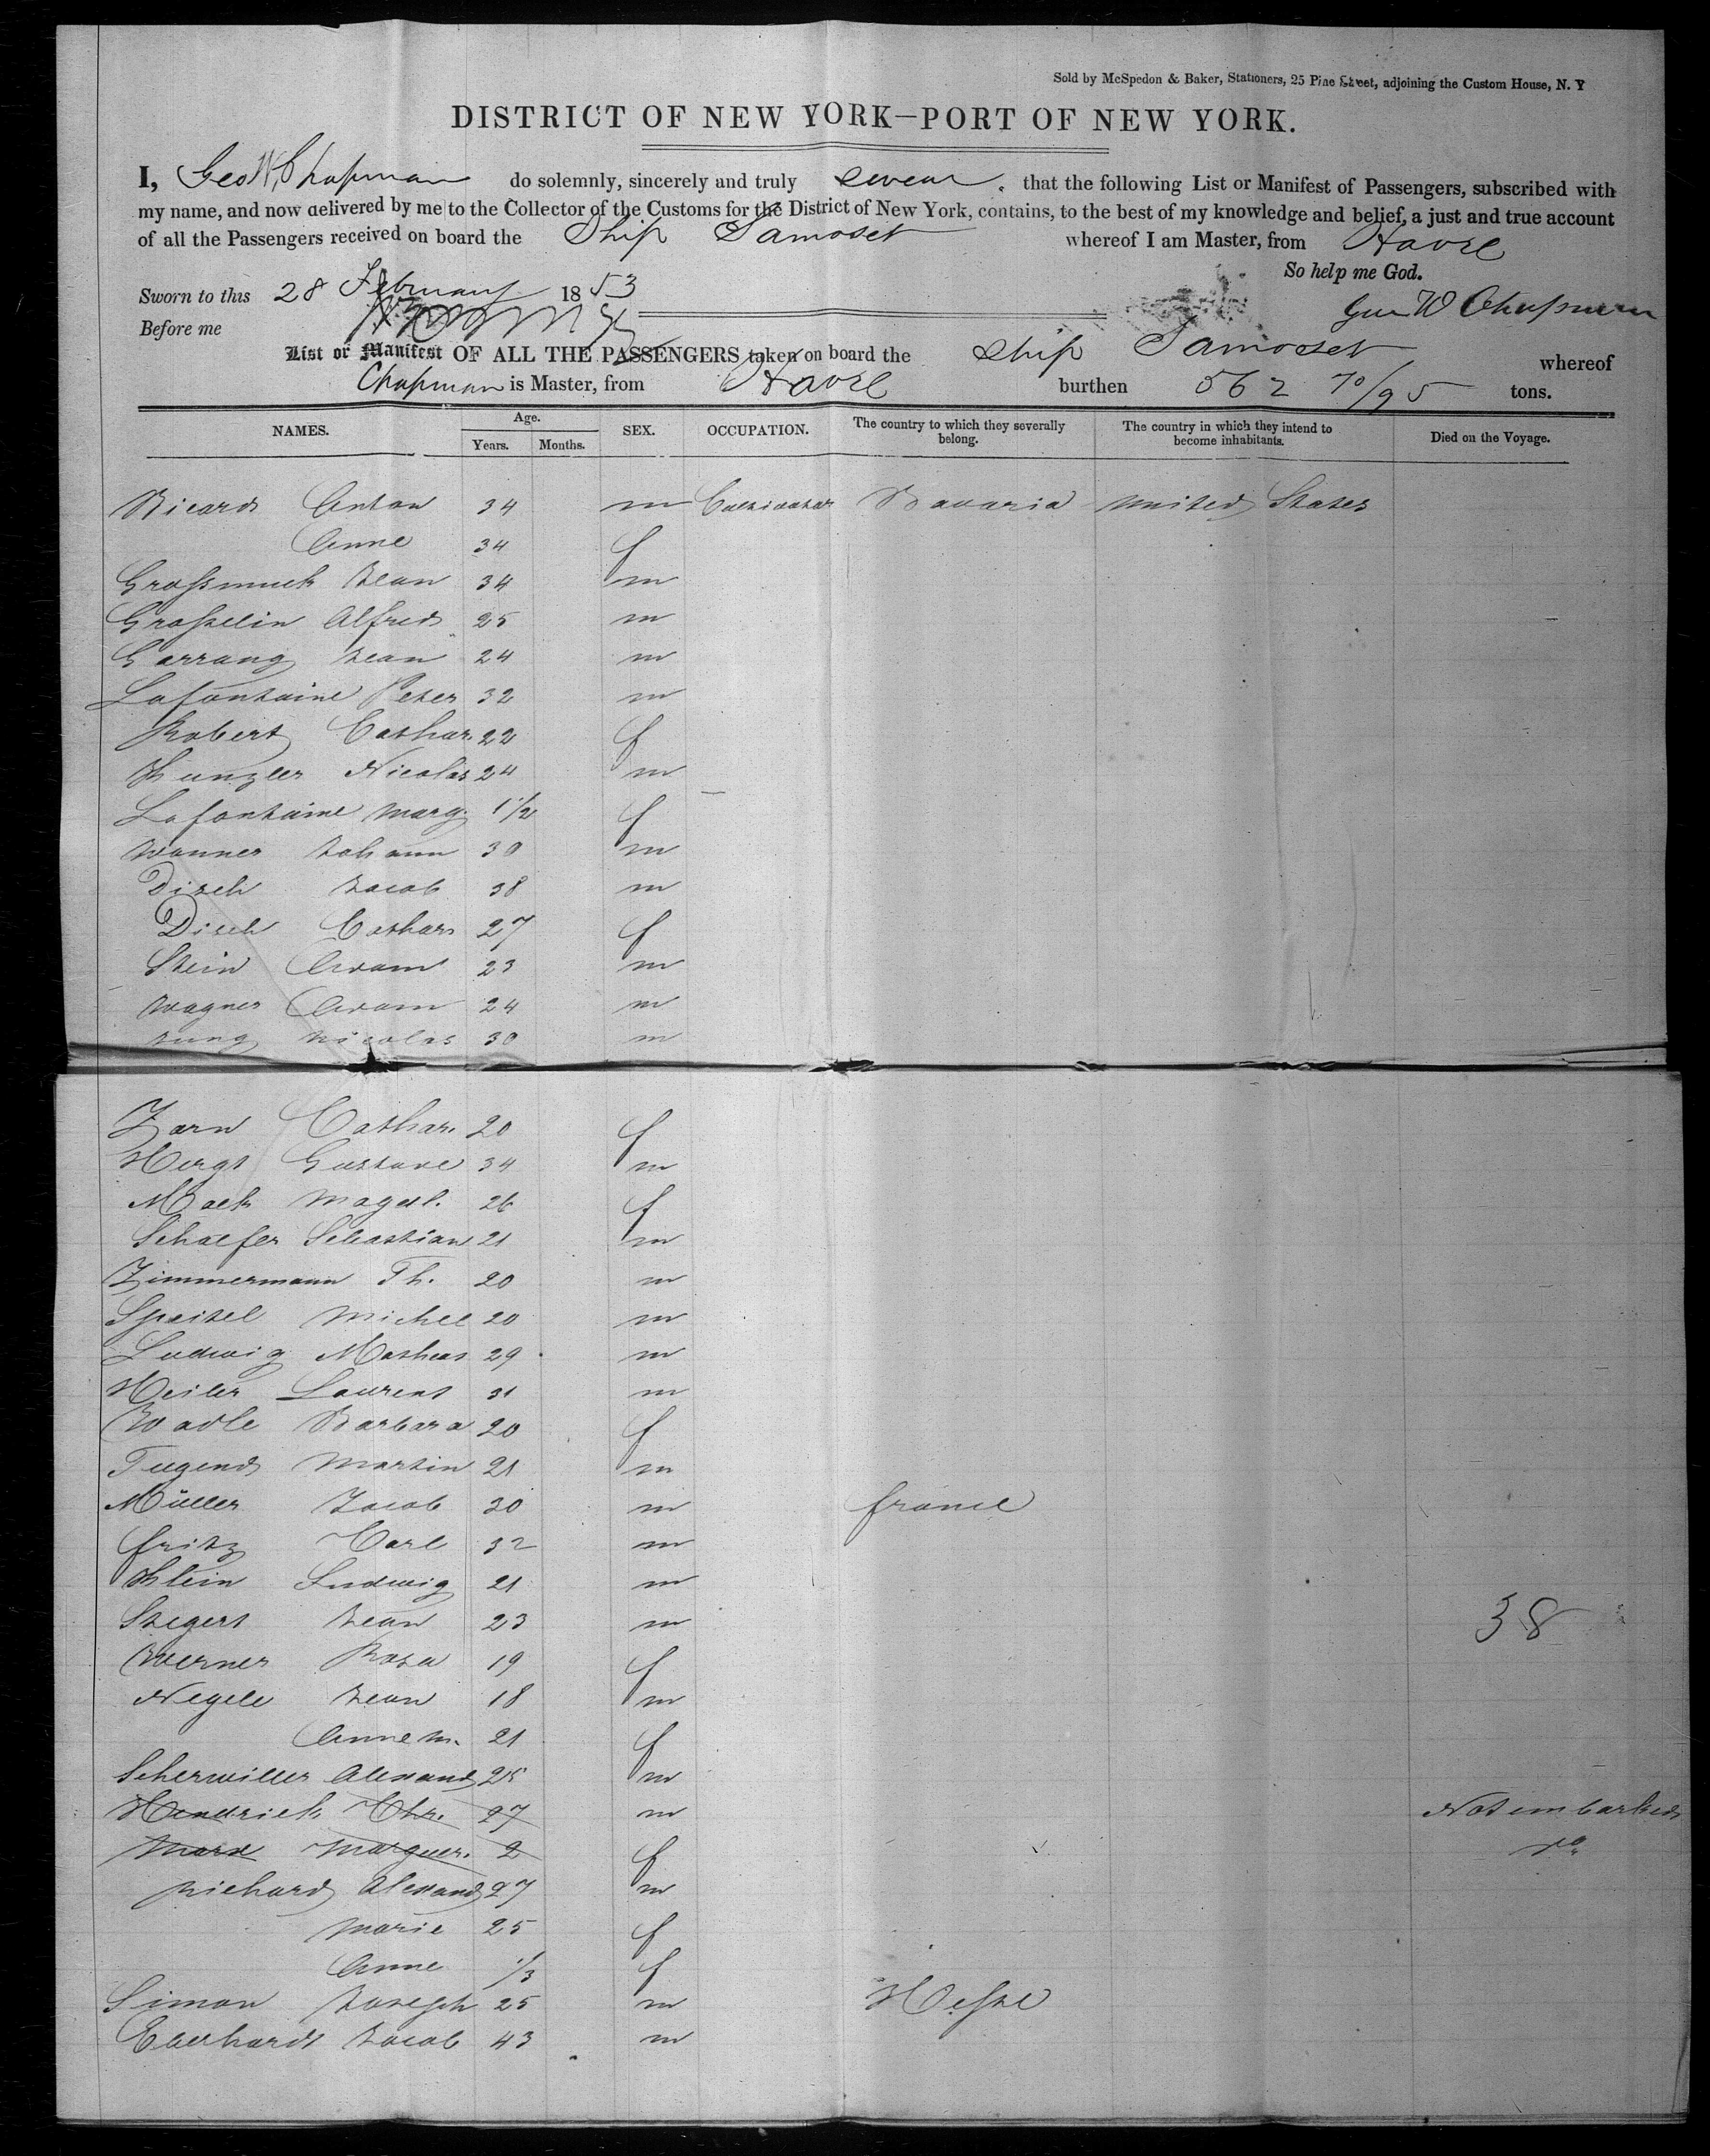 Sold by McSpedon & Baker, Stationers, 25 Pine Street, adjoining the Custom House, N. Y
DISTRICT OF NEW YORK—PORT OF NEW YORK.
I, Geo W. Chapman do solemnly, sincerely and truly swear, that the following List or Manifest of Passengers, subscribed with
my name, and now delivered by me to the Collector of the Customs for the District of New York, contains, to the best of my knowledge and belief, a just and true account
of all the Passengers received on board the Ship Samoset whereof I am Master, from Havre
So help me God.
Sworn to this 28 February 1853
Geo W Chapman
Before me
List or Manifest OF ALL THE PASSENGERS taken on board the ship Samoset whereof
Chapman is Master, from Havre burthen 562 70/95 tons.
NAMES. Age. Years. Months. SEX. OCCUPATION. The country to which they severally belong. The country in which they intend to become inhabitants. Died on the Voyage.
Ricard Anton 34 m Cultivator Bavaria United States
Anne 34 f
Grossmuck Jean 34 m
Grosselin Alfred 25 m
Garrang Jean 24 m
Lafontaine Peter 32 m
Robert Cathar. 22 f
Kunzler Nicolas 24 m
Lafontaine Marg. 1 1/2 f
Wanner Johann 30 m
Disch Jacob 38 m
Disch Cathar 27 f
Stein Adam 23 m
Wagner Adam 24 m
Jung Nicolas 30 m
Zarn Cathar. 20 f
Hergt Gustave 34 m
Mack Magdl. 26 f
Schaefer Sebastian 21 m
Zimmermann Th. 20 m
Speisel Michel 20 m
Ludwig Matheas 29 m
Heiler Laurent 31 m
Wadle Barbara 20 f
Tugend Martin 21 m
Müller Jacob 30 m France
Fritz Carl 32 m
Klein Ludwig 21 m
Stegert Jean 23 m 38
Werner Rosa 19 f
Negele Jean 18 m
Anne M. 21 f
Scherwiller Alexand 25 m
Hendrich Chr. 27 m Not embarked
Marx Marguer. 2 f do
Richard Alexand 27 m
Marie 25 f
Anne 1/3 f
Simon Joseph 25 m Hesse
Eberhardt Jacob 43 m